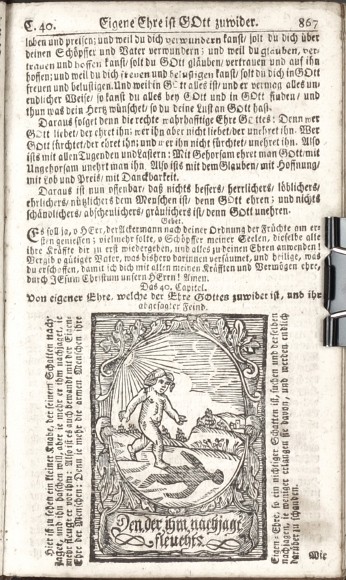 C. 40. Eigene Ehre ist GOtt zuwider. 867
loben und preisen; und weil du dich verwundern kanst/ solt du dich über
deinen Schöpffer und Vater verwundern; und weil du glauben, ver-
trauen und hoffen kanst/ solt du GOtt gläuben/ vertrauen und auf ihn
hoffen; und weil du dich freuen und belustigen kanst/ solt du dich in GOtt
freuen und belustigen. Und weil in GOtt alles ist/ und er vermag alles un-
endlicher Weise/ so kanst du alles bey GOtt und in GOtt finden/ und
thun was dein Hertz wünschet/ so du deine Lust an GOtt hast.
Daraus folget denn die rechte wahrhafftige Ehre GOttes: Denn wer
GOtt liebet/ der ehret ihn; wer ihn aber nicht liebet/ der unehret ihn. Wer
GOtt fürchtet/ der ehret ihn; und wer ihn nicht fürchtet/ unehret ihn. Also
ists mit allen Tugenden und Lastern: Mit Gehorsam ehret man GOtt/ mit
Ungehorsam unehrt man ihn. Also ists mit dem Glauben/ mit Hoffnung/
mit Lob und Preis/ mit Danckbarkeit.
Daraus ist nun offenbar/ daß nichts bessers/ herrlichers/ löblichers/
ehrlichers/ nützlichers dem Menschen ist/ denn GOtt ehren; und nichts
schändlichers/ abscheulichers/ gräulichers ist/ denn GOtt unehren.
Gebet.
ES soll ja, o HErr, der Ackermann nach deiner Ordnung der Früchte am er-
sten geniessen; vielmehr solte, o Schöpffer meiner Seelen, dieselbe alle
ihre Kräffte dir zu erst wiedergeben, und alles zu deinen Ehren anwenden!
Vergib o gütiger Vater, was bishero darinnen versäumet, und heilige, was
du erschaffen, damit ich dich mit allen meinen Kräfften und Vermögen ehre,
durch JEsum Christum unsern HErrn! Amen.
Das 40. Capitel.
Von eigener Ehre, welche der Ehre GOttes zuwider ist, und ihr
abgesagter Feind.
Hier ist zu sehen ein kleiner Knabe, der seinem Schatten nach-
jaget, und ihn haschen will, aber je mehr er ihm nachjaget, je
mehr fleugt er vor ihm: Also ist es auch bewandt mit der Eitern
Ehre der Menschen: Denn je mehr die armen Menschen ihre
Den, der ihm nachjagt
fleuchts.
Eigen-Ehre, so ein nichtiger Schatten ist, suchen und derselben
nachjagen, je weniger erlangen sie davon, und werden endlich
darüber zu schanden.
Wie